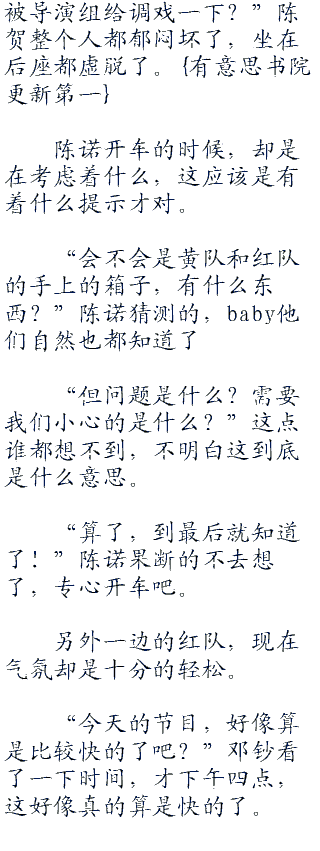 被导演组给调戏一下？”陈
贺整个人都郁闷坏了，坐在
后座都虚脱了。{有意思书院
更新第一}
陈诺开车的时候，却是
在考虑着什么，这应该是有
着什么提示才对。
“会不会是黄队和红队
的手上的箱子，有什么东
西？”陈诺猜测的，baby他
们自然也都知道了
“但问题是什么？需要
我们小心的是什么？”这点
谁都想不到，不明白这到底
是什么意思。
“算了，到最后就知道
了！”陈诺果断的不去想
了，专心开车吧。
另外一边的红队，现在
气氛却是十分的轻松。
“今天的节目，好像算
是比较快的了吧？”邓钞看
了一下时间，才下午四点，
这好像真的算是快的了。